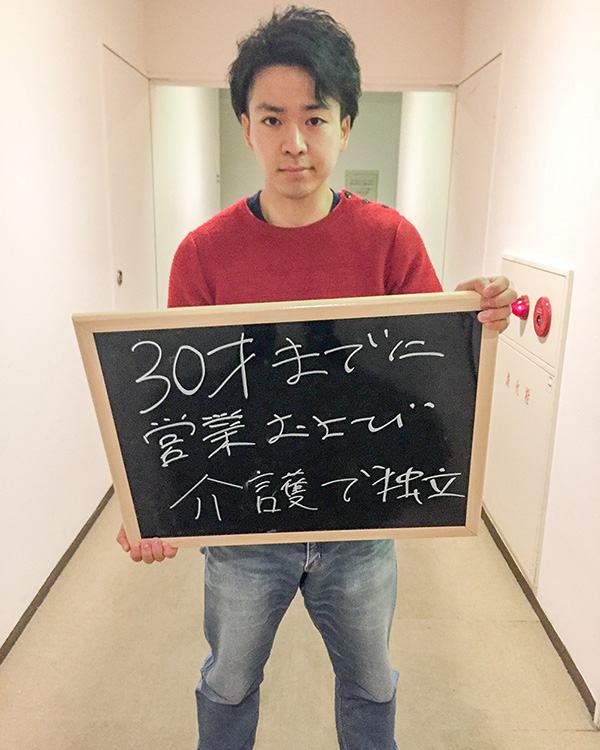 30才までに
営業および
介護で独立
消火栓